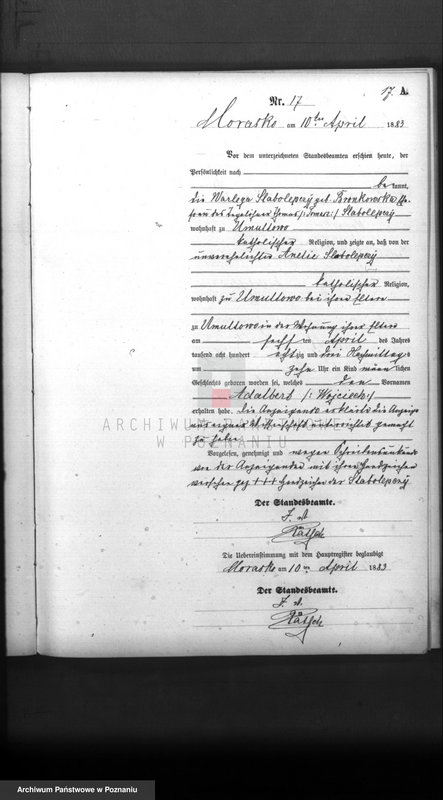 17. A.
Nr. 17
Morasko am 10ten April 1883
Vor dem unterzeichneten Standesbeamten erschien heute, der
Persönlichkeit nach
bekannt,
die geb. Bronkowska
Stabolepszy
wohnhaft zu Umultowo
katholischer Religion, und zeigte an, daß von der
unverehelichten Anelie Stabolepszy
katholischer Religion,
wohnhaft zu Umultowo bei ihren Eltern
zu Umultowo in der Wohnung ihrer Eltern
am sechs ten April des Jahres
tausend acht hundert achtzig und drei Nachmittags
um zehn Uhr ein Kind männlichen
Geschlechts geboren worden sei, welches den Vornamen
Adalbert /: Wojciech :/
erhalten habe. Die Anzeigende erklärt die Anzeige
aus eigener Wissenschaft unterrichtet gemacht
zu haben
Vorgelesen, genehmigt und wegen Schreibensunkunde
von der Anzeigenden mit ihren Handzeichen
versehen gez +++ Handzeichen der Stabolepszy
Der Standesbeamte.
Der Standesbeamte.
Die Uebereinstimmung mit dem Hauptregister beglaubigt
Morasko am 10ten April 1883
ARCHIWUM
W POZNANIU
Archiwum Państwowe w Poznaniu